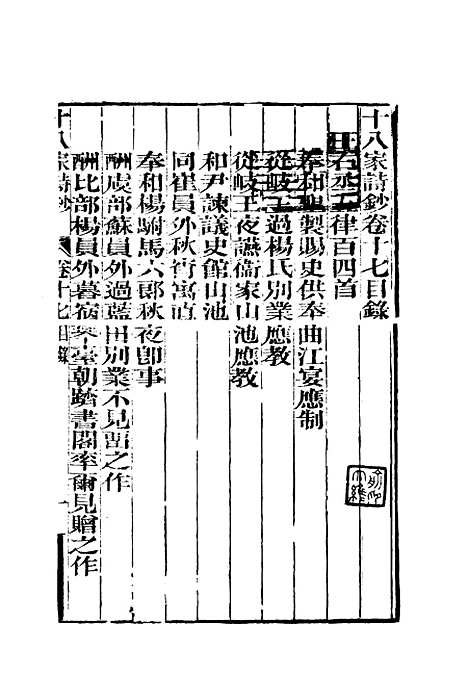 十八家詩鈔卷十七目錄
王右丞五律百四首
奉和聖製賜史供奉曲江宴應制
從岐王過楊氏別業應教
從岐王夜讌衞家山池應教
和尹諫議史館山池
同崔員外秋宵寓直
奉和楊駙馬六郎秋夜卽事
酬虞部蘇員外過藍田別業不見畱之作
酬比部楊員外暮宿琴臺朝躋書閣率爾見贈之作
十八家詩鈔 卷十七目錄 一